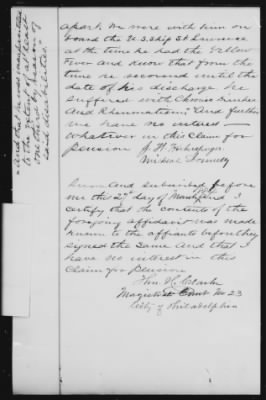 "And that he was incapacitated
to the extent of at least
one third by reason of
said disabilities."
apart. We more with him on
board the U.S. Ship St Lawrence
at the time he had the Yellow
Fever and know that from the
time he recovered until the
date of his discharge he
suffered with Chronic
And Rheumatism," And further
we have no interest
whatever in this Claim for
pension
Michael Donnelly
Sworn And Subscribed before
me the 2d day of March And I
certify that the contents of the
foregoing affidavit was made
known to the affiants before they
signed the same And that I
have no interest in this
Claim for Pension
Thos. H. Clark
Magistrate Court No 23
City of Philadelphia